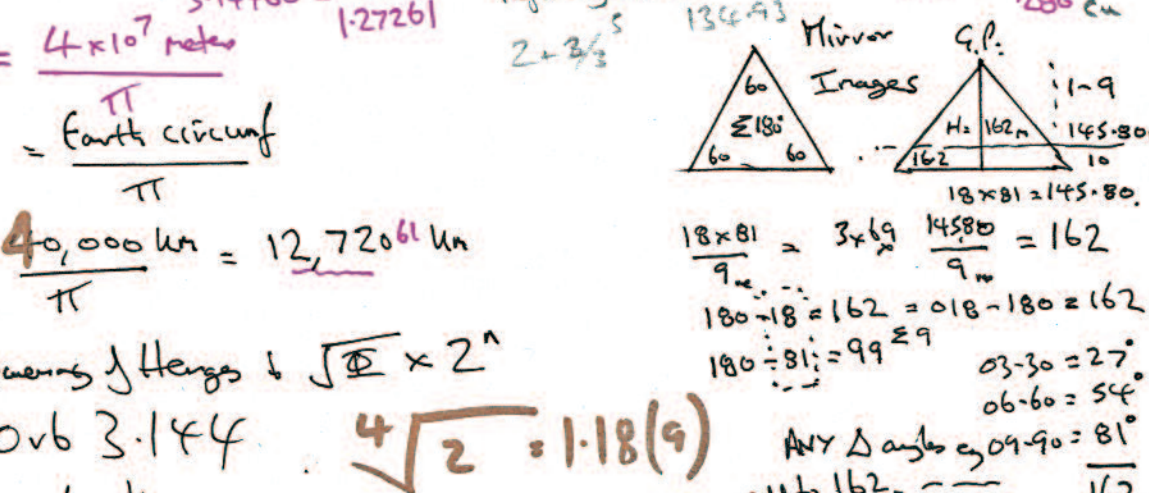 1.27261
= 4 x 10⁷ meters
π
= Earth circumf
π
40,000 km = 12,720⁶¹ km
π
Henges & √Φ x 2ⁿ
3.144
⁴√2 = 1.18(9)
134.93
Mirror
Images
G.P.
60
Σ180°
60 60
H= 162m
162
1-9
145.80
10
18 x 81 = 145.80.
18 x 81 = 3 x 69 14580 = 162
9 9
180 - 18 = 162 = 018 - 180 = 162
180 - 81 = 99 Σ9
03-30 = 27°
06-60 = 54°
ANY Δ angles eg 09-90 = 81°
162 162